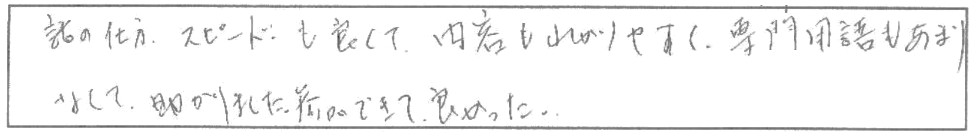 話の仕方、スピードも良くて、内容もわかりやすく、専門用語もあまり
なくて、助かりました。参加できて、良かった。